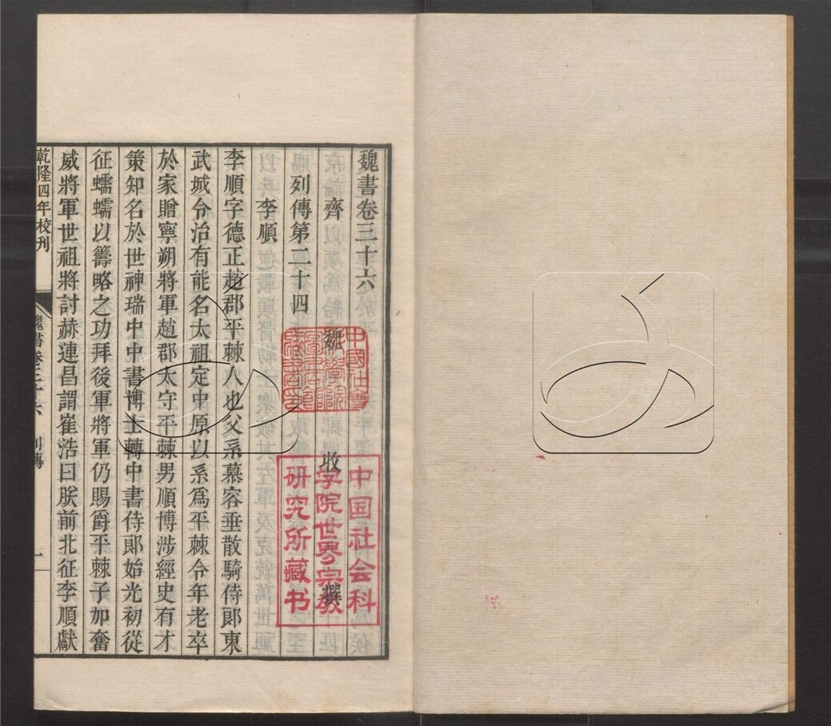 魏書卷三十六
齊 魏 收 撰
列傳第二十四
李順
李順字德正趙郡平棘人也父系慕容垂散騎侍郎東
武城令治有能名太祖定中原以系爲平棘令年老卒
於家贈寧朔將軍趙郡太守平棘男順博涉經史有才
策知名於世神瑞中中書博士轉中書侍郎始光初從
征蠕蠕以籌略之功拜後軍將軍仍賜爵平棘子加奮
威將軍世祖將討赫連昌謂崔浩曰朕前北征李順獻
乾隆四年校刊 魏書卷三十六 列傳 一
中国社会科
学院世界宗教
研究所藏书